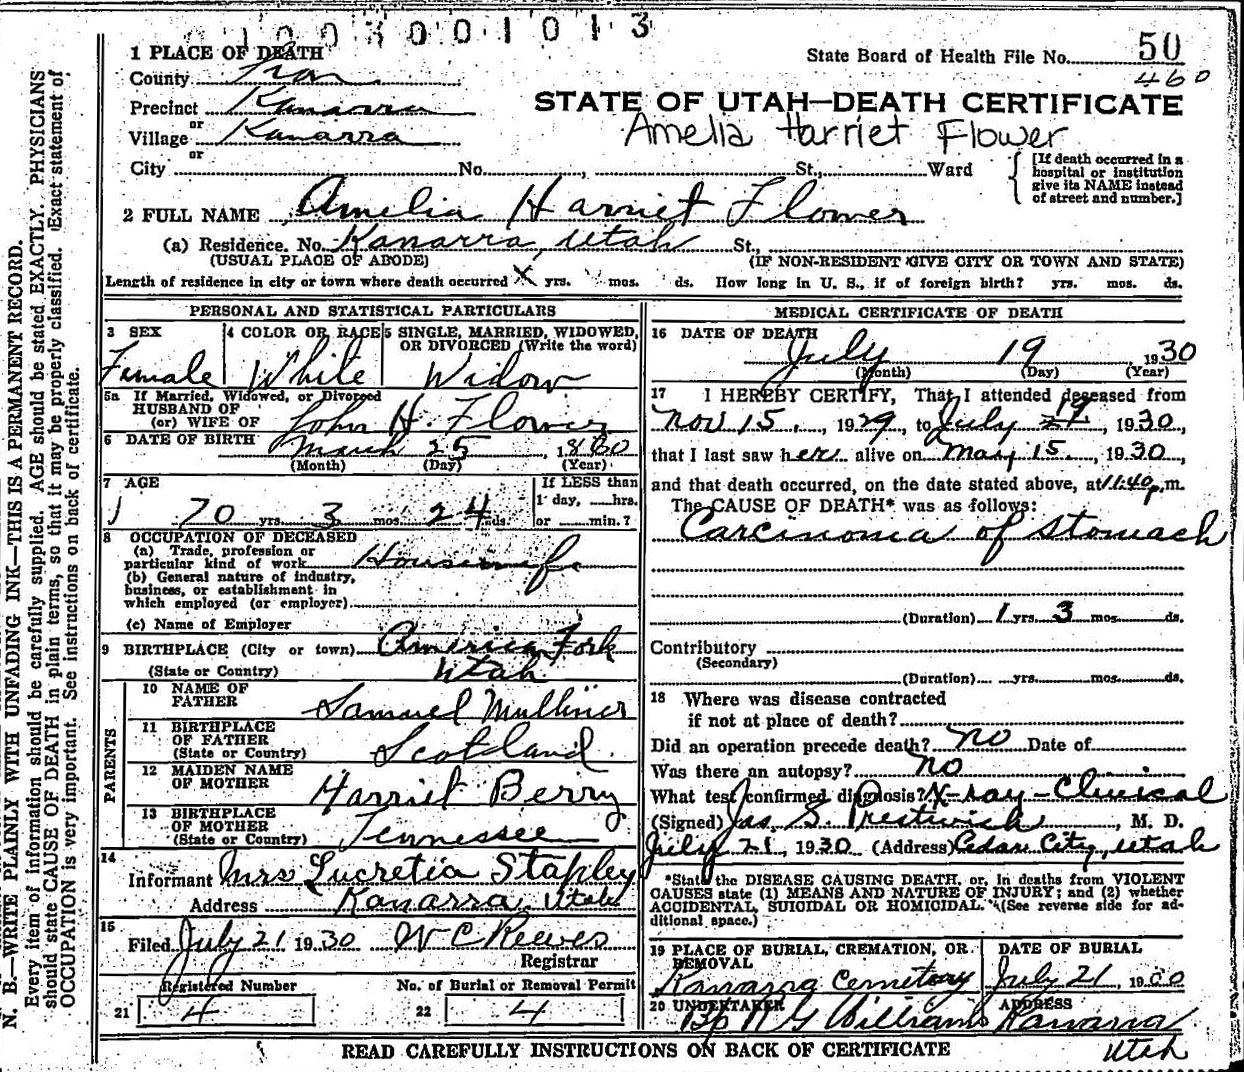 01003001013
1 PLACE OF DEATH
State Board of Health File No. 50
460
County Iron
Precinct Kanarra
or
Village Kanarra
or
STATE OF UTAH—DEATH CERTIFICATE
Amelia Harriet Flower
City No. , St., Ward
[If death occurred in a hospital or institution give its NAME instead of street and number.]
2 FULL NAME Amelia Harriet Flower
(a) Residence. No. Kanarra, Utah St.,
(USUAL PLACE OF ABODE) (IF NON-RESIDENT GIVE CITY OR TOWN AND STATE)
Length of residence in city or town where death occurred X yrs. mos. ds. How long in U. S., if of foreign birth? yrs. mos. ds.
PERSONAL AND STATISTICAL PARTICULARS
3 SEX
Female
4 COLOR OR RACE
White
5 SINGLE, MARRIED, WIDOWED, OR DIVORCED (Write the word)
Widow
5a If Married, Widowed, or Divorced
HUSBAND OF
(or) WIFE OF John H. Flower
6 DATE OF BIRTH March 25, 1860
(Month) (Day) (Year)
7 AGE
70 yrs. 3 mos. 24 ds.
If LESS than
1 day, hrs.
or min.?
8 OCCUPATION OF DECEASED
(a) Trade, profession or
particular kind of work Housewife
(b) General nature of industry,
business, or establishment in
which employed (or employer)
(c) Name of Employer
9 BIRTHPLACE (City or town) American Fork
(State or Country) Utah
PARENTS
10 NAME OF
FATHER Samuel Mulliner
11 BIRTHPLACE
OF FATHER
(State or Country) Scotland.
12 MAIDEN NAME
OF MOTHER Harriet Berry
13 BIRTHPLACE
OF MOTHER
(State or Country) Tennessee
14
Informant Mrs Lucretia Stapley
Address Kanarra, Utah
15
Filed July 21 1930 W C Reeves
Registrar
Registered Number No. of Burial or Removal Permit
21 4 22 4
MEDICAL CERTIFICATE OF DEATH
16 DATE OF DEATH
July 19 1930
(Month) (Day) (Year)
17 I HEREBY CERTIFY, That I attended deceased from
Nov 15, 1929, to July 19, 1930,
that I last saw her alive on May 15, 1930,
and that death occurred, on the date stated above, at 11:40 p.m.
The CAUSE OF DEATH* was as follows:
Carcinoma of Stomach
(Duration) 1 yrs. 3 mos. ds.
Contributory
(Secondary)
(Duration) yrs. mos. ds.
18 Where was disease contracted
if not at place of death?
Did an operation precede death? No Date of
Was there an autopsy? No
What test confirmed diagnosis? X-ray - Clinical
(Signed) Jas. S. Prestwich, M. D.
July 21, 1930 (Address) Cedar City, Utah
*State the DISEASE CAUSING DEATH, or, in deaths from VIOLENT
CAUSES state (1) MEANS AND NATURE OF INJURY; and (2) whether
ACCIDENTAL, SUICIDAL OR HOMICIDAL. (See reverse side for ad-
ditional space.)
19 PLACE OF BURIAL, CREMATION, OR REMOVAL
Kanarra Cemetery
DATE OF BURIAL
July 21, 1930
20 UNDERTAKER
Bp W G Williams
ADDRESS
Kanarra
Utah
READ CAREFULLY INSTRUCTIONS ON BACK OF CERTIFICATE
N. B.—WRITE PLAINLY WITH UNFADING INK—THIS IS A PERMANENT RECORD.
Every item of information should be carefully supplied. AGE should be stated EXACTLY. PHYSICIANS
should state CAUSE OF DEATH in plain terms, so that it may be properly classified. Exact statement of
OCCUPATION is very important. See instructions on back of certificate.